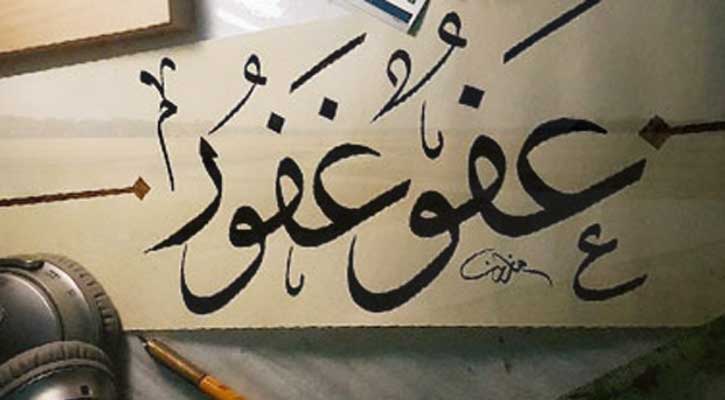 عَفُوٌ غَفُورٌ